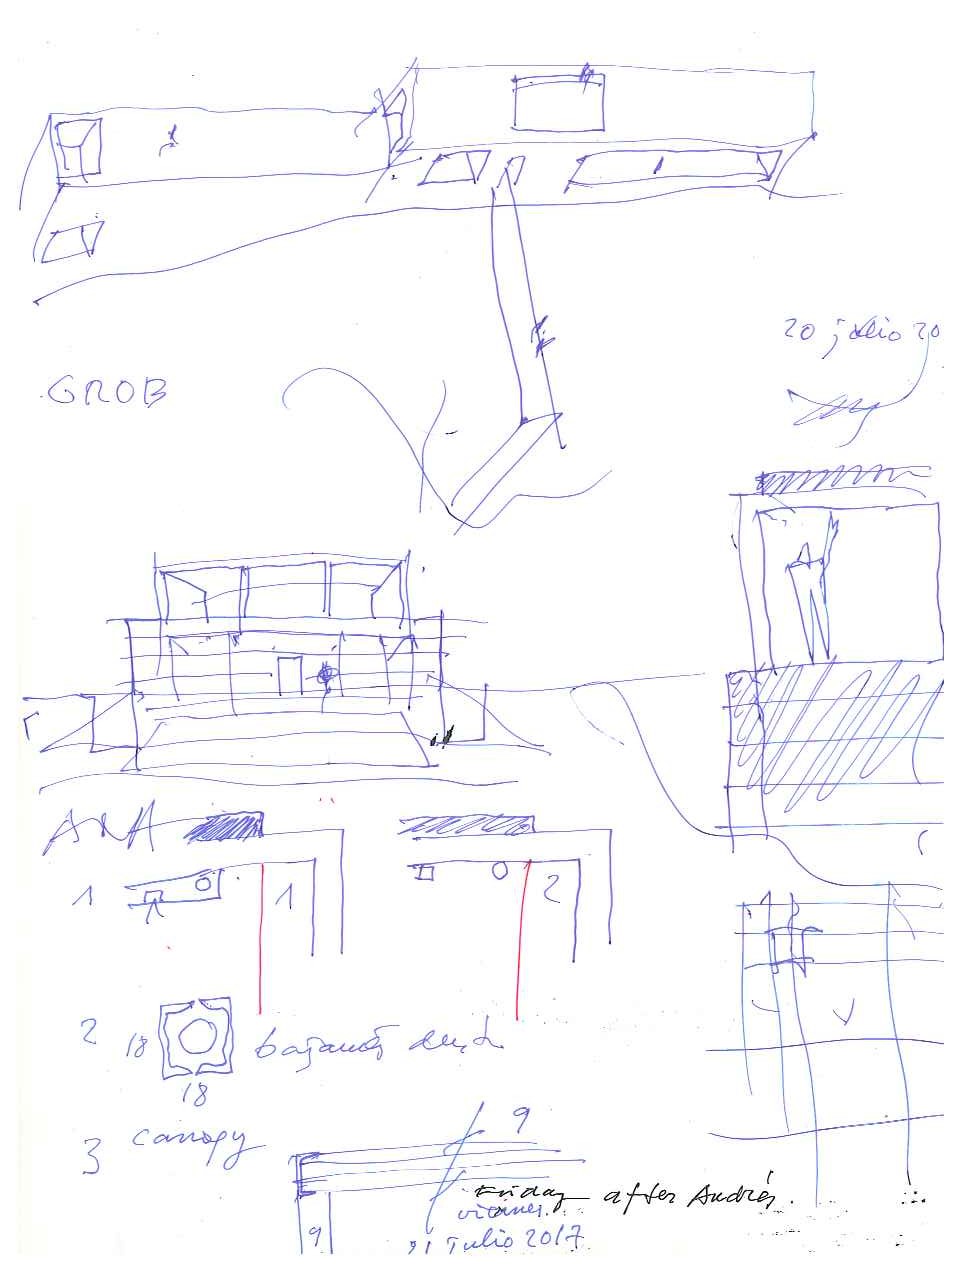 20 julio 20
GROB
ANA
1
1
2
2
18
bajantes
18
3 canopy
9
Friday after Andrés.
viernes
9
21 Julio 2017